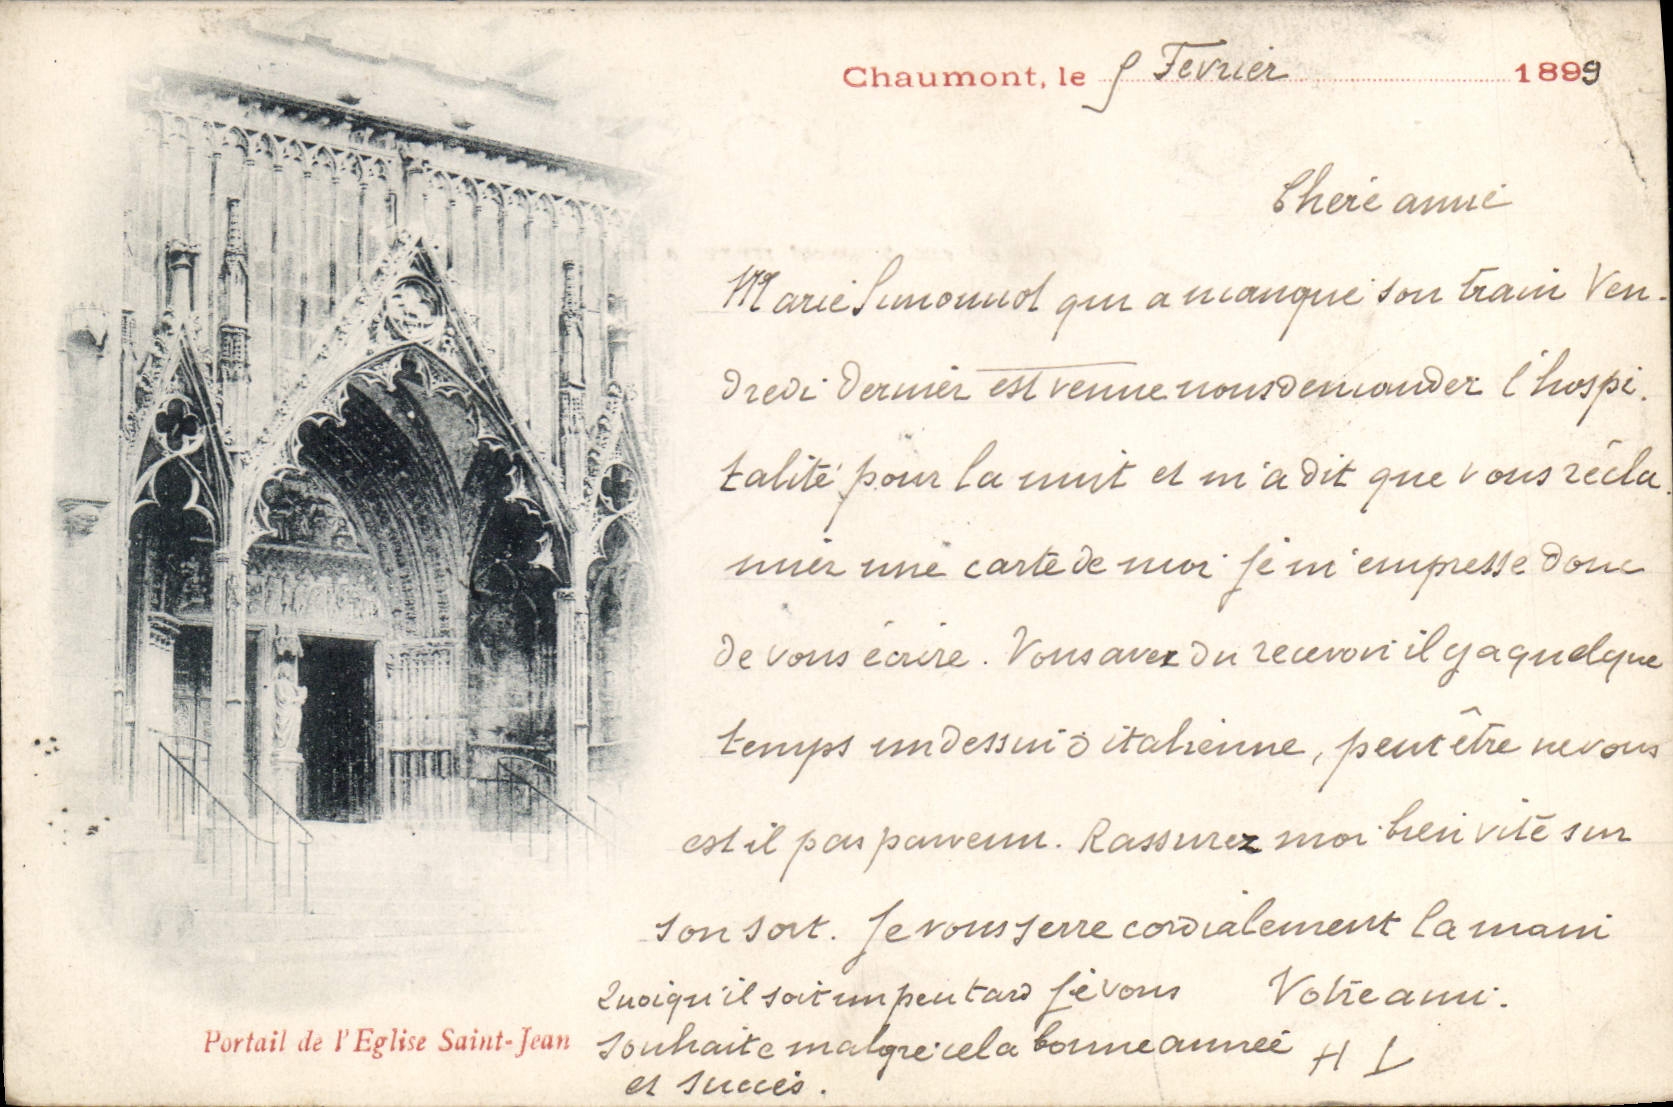 Chaumont, le 5 Fevrier 1899
Chère amie
Marie Simonnot qui a manqué son train Ven-
dredi dernier est venue nous demander l'hospi-
talité pour la nuit et m'a dit que vous récla-
miez une carte de moi je m'empresse donc
de vous écrire. Vous avez du recevoir il y a quelque
temps un dessin d'italienne, peut être ne vous
est il pas parvenu. Rassurez moi bien vite sur
son sort. Je vous serre cordialement la main
Votre amie.
H L
Quoiqu'il soit un peu tard je vous
souhaite malgré cela bonne année
et succès.
Portail de l'Eglise Saint-Jean